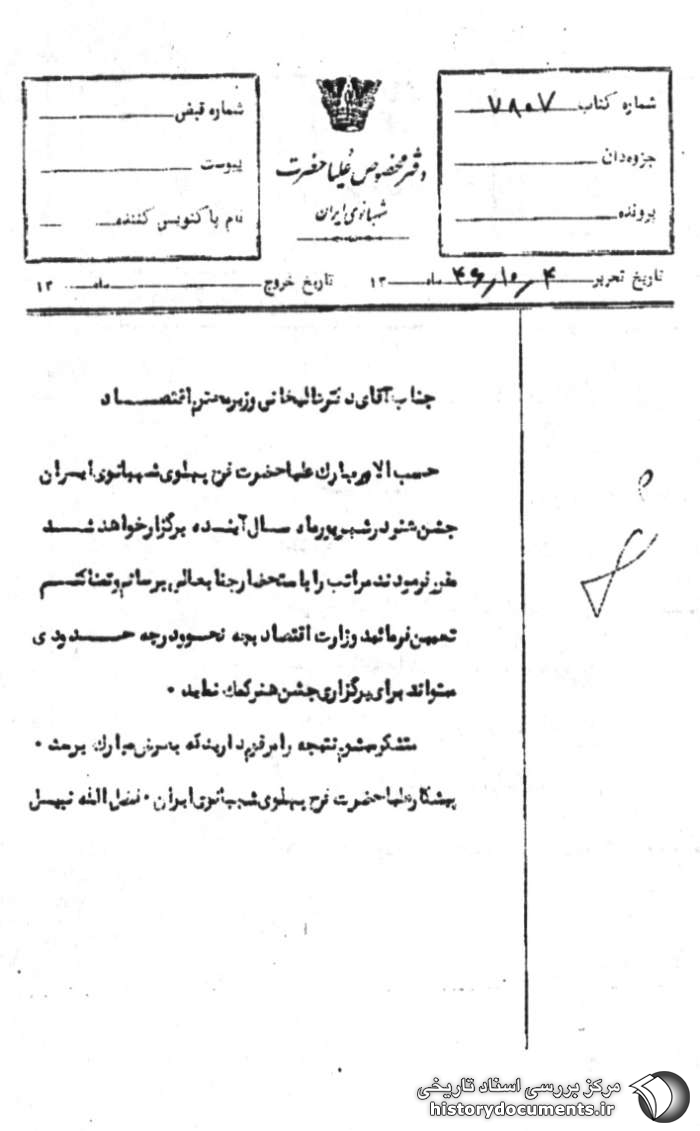 شماره کتاب ۷۸۰۷
جزوه‌دان
پرونده
دفتر مخصوص علیاحضرت
شهبانوی ایران
شماره قبض
پیوست
نام پاکنویس کننده
تاریخ تحریر ۴ر۱۰ر۴۶ ماه ۱۳ تاریخ خروج ماه ۱۳
جناب آقای دکتر عالیخانی وزیر محترم اقتصاد
حسب الامر مبارک علیاحضرت فرح پهلوی شهبانوی ایران
جشن هنر در شهریور ماه سال آینده برگزار خواهد شد
مقرر فرمودند مراتب را باستحضار جنابعالی برسانم و تمنا کنم
تعیین فرمائید وزارت اقتصاد بچه نحو و در چه حدودی
میتواند برای برگزاری جشن هنر کمک نماید .
متشکر میشوم نتیجه را مرقوم دارید که بعرض مبارک برسد .
پیشکار علیاحضرت فرح پهلوی شهبانوی ایران . فضل الله نبیل
مرکز بررسی اسناد تاریخی
historydocuments.ir